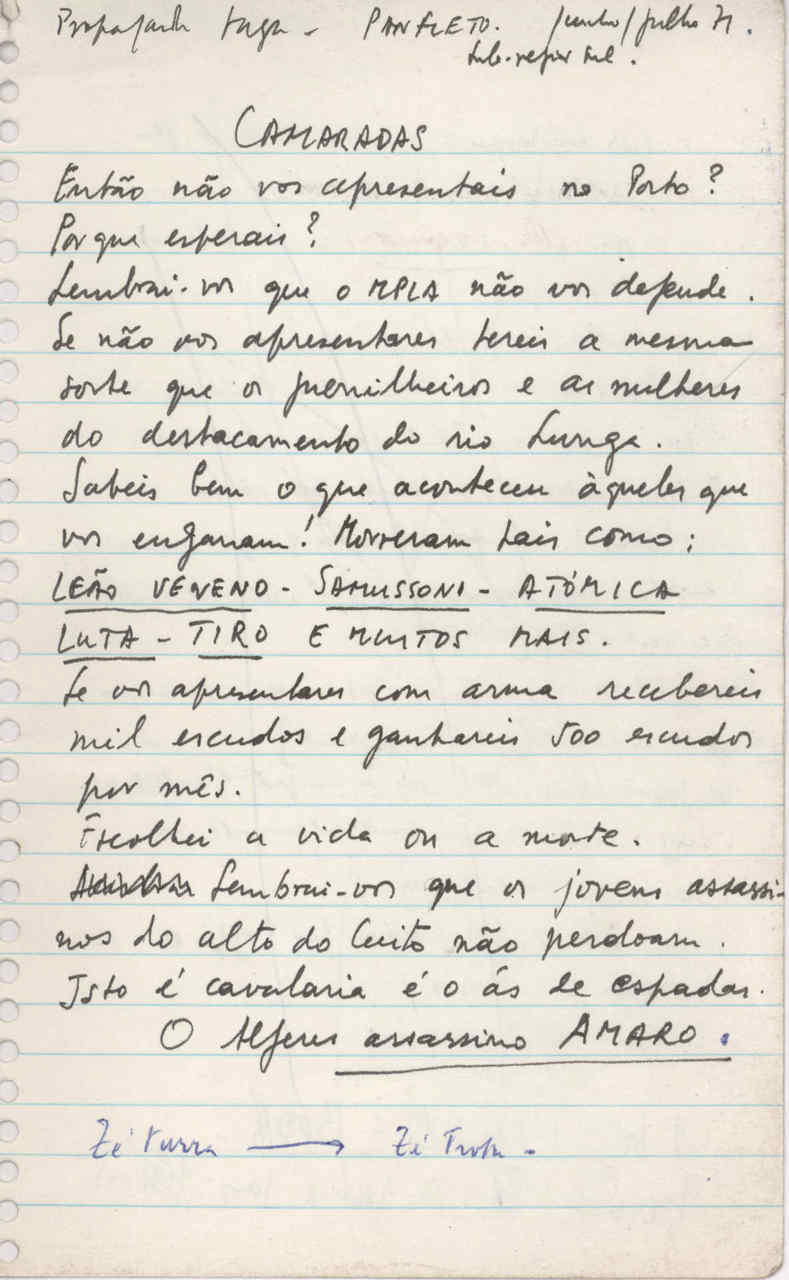 Propaganda tuga - PANFLETO. Junho/Julho 71.
Sub-região Sul.
CAMARADAS
Então não vos apresentais no Posto?
Por que esperais?
Lembrai-vos que o MPLA não vos defende.
Se não vos apresentares tereis a mesma
sorte que os guerrilheiros e as mulheres
do destacamento do rio Lunga.
Sabeis bem o que aconteceu àqueles que
vos enganam! Morreram tais como:
LEÃO VENENO - SAMUSSONI - ATÓMICA
LUTA - TIRO E MUITOS MAIS.
Se vos apresentares com arma recebereis
mil escudos e ganhareis 500 escudos
por mês.
Escolhei a vida ou a morte.
Lembrai-vos que os jovens assassi-
nos do alto do Cuito não perdoam.
Isto é cavalaria é o ás de espadas.
O Alferes assassino AMARO.
Zé Turra → Zé Tropa -